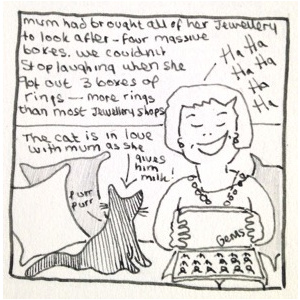 mum had brought all of her Jewellery
to look after - four massive
boxes. we couldn't
stop laughing when she
got out 3 boxes of
rings — more rings
than most Jewellery shops
Ha Ha
Ha Ha
Ha Ha
Ha
The cat is in love
with mum as she
gives
him
milk!
purr
purr
Gems